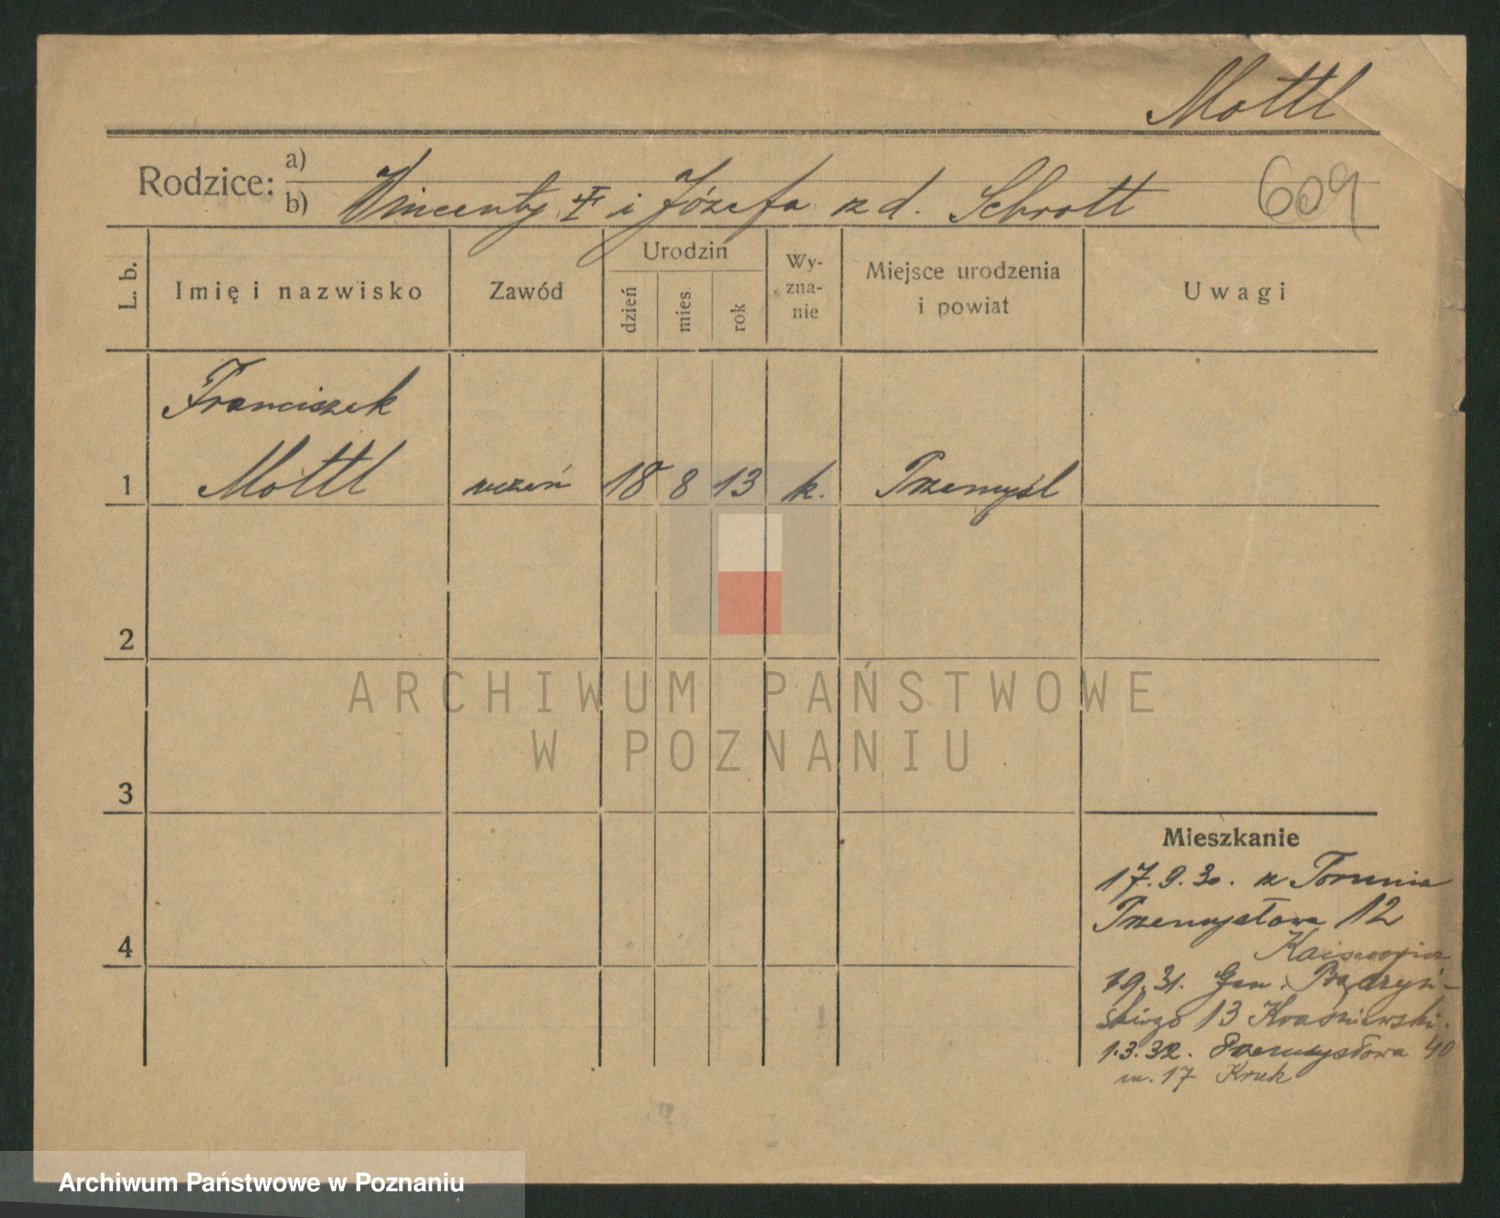 Mottl
Rodzice: a)
b) Wincenty i Józefa z d. Schrott
609
L. b.
Imię i nazwisko
Zawód
Urodzin
dzień
mies
rok
Wy-
zna-
nie
Miejsce urodzenia
i powiat
Uwagi
Franciszek
1 Mottl uczeń 18 8 13 k. Przemyśl
2
3
4
Mieszkanie
17.9.30. z Torunia
Przemysłowa 12
1.9.31. Gen. Prądzyń-
skiego 13 Kraśniewski.
1.3.32. Przemysłowa 40
m. 17 Kruk
ARCHIWUM PAŃSTWOWE
W POZNANIU
Archiwum Państwowe w Poznaniu